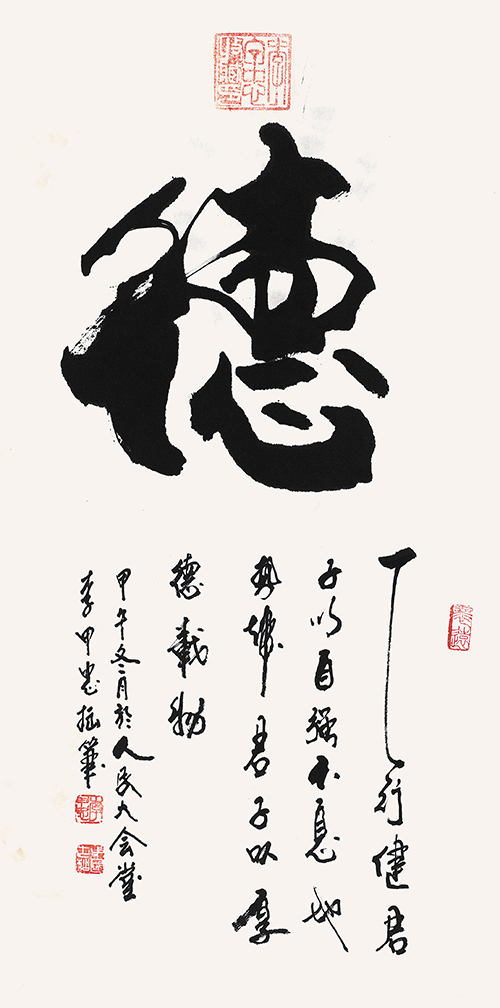 德
天行健君
子以自强不息地
势坤君子以厚
德載物
甲午冬月於人民大会堂
李甲忠拙筆